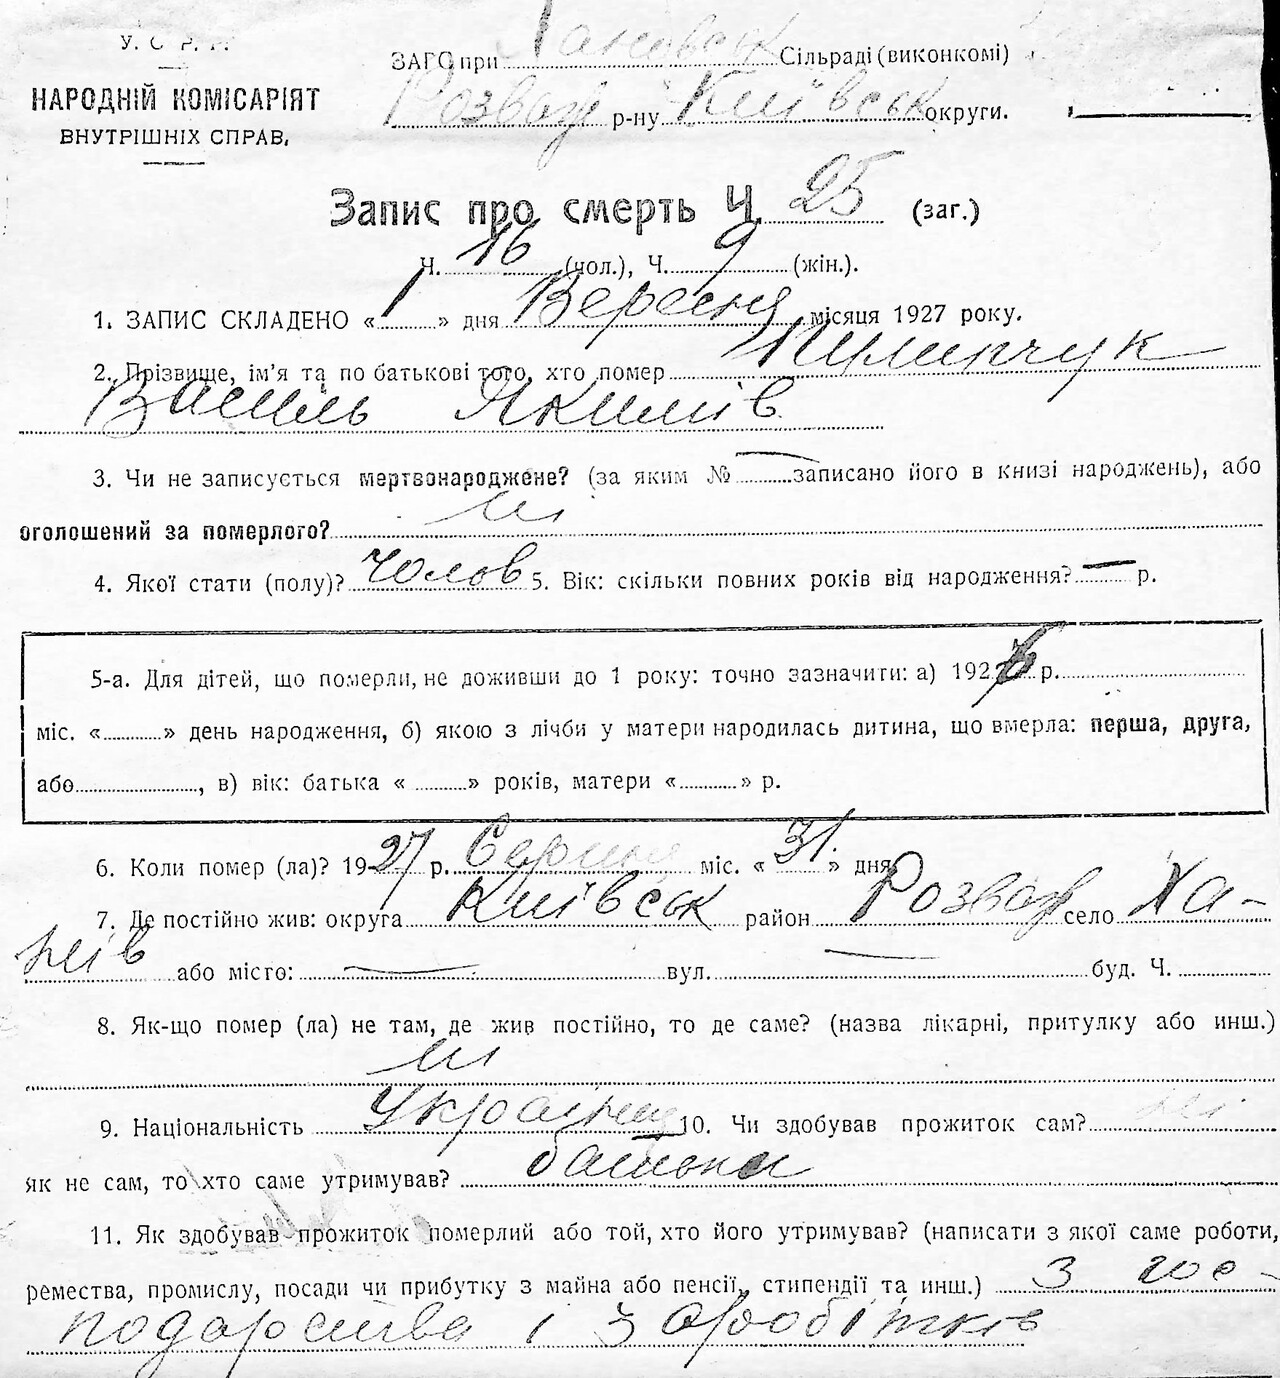 У. С. Р. Р.
НАРОДНІЙ КОМІСАРІЯТ
ВНУТРІШНІХ СПРАВ.
ЗАГС при Сільраді (виконкомі)
Розваж р-ну Київськ округи.
Запис про смерть Ч. 25 (заг.)
Ч. 16 (чол.), Ч. 9 (жін.).
1. ЗАПИС СКЛАДЕНО «1» дня Вересня місяця 1927 року.
2. Прізвище, ім'я та по батькові того, хто помер Пилипчук
Василь Якимів
3. Чи не записується мертвонароджене? (за яким № — записано його в книзі народжень), або
оголошений за померлого? ні
4. Якої стати (полу)? Чолов 5. Вік: скільки повних років від народження? — р.
5-а. Для дітей, що померли, не доживши до 1 року: точно зазначити: а) 192 р.
міс. « » день народження, б) якою з лічби у матери народилась дитина, що вмерла: перша, друга,
або , в) вік: батька « » років, матери « » р.
6. Коли помер (ла)? 1927 р. Серпня міс. «31» дня
7. Де постійно жив: округа Київськ район Розваж село Ха-
неїв або місто: — вул. — буд. Ч.
8. Як-що помер (ла) не там, де жив постійно, то де саме? (назва лікарні, притулку або инш.)
ні
9. Національність Українець 10. Чи здобував прожиток сам? ні
як не сам, то хто саме утримував? батьки
11. Як здобував прожиток померлий або той, хто його утримував? (написати з якої саме роботи,
ремества, промислу, посади чи прибутку з майна або пенсії, стипендії та инш.) З гос-
подарства і заробітків